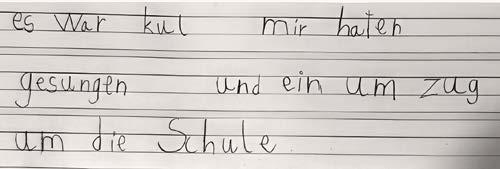 es war kul mir haten
gesungen und ein um zug
um die Schule.